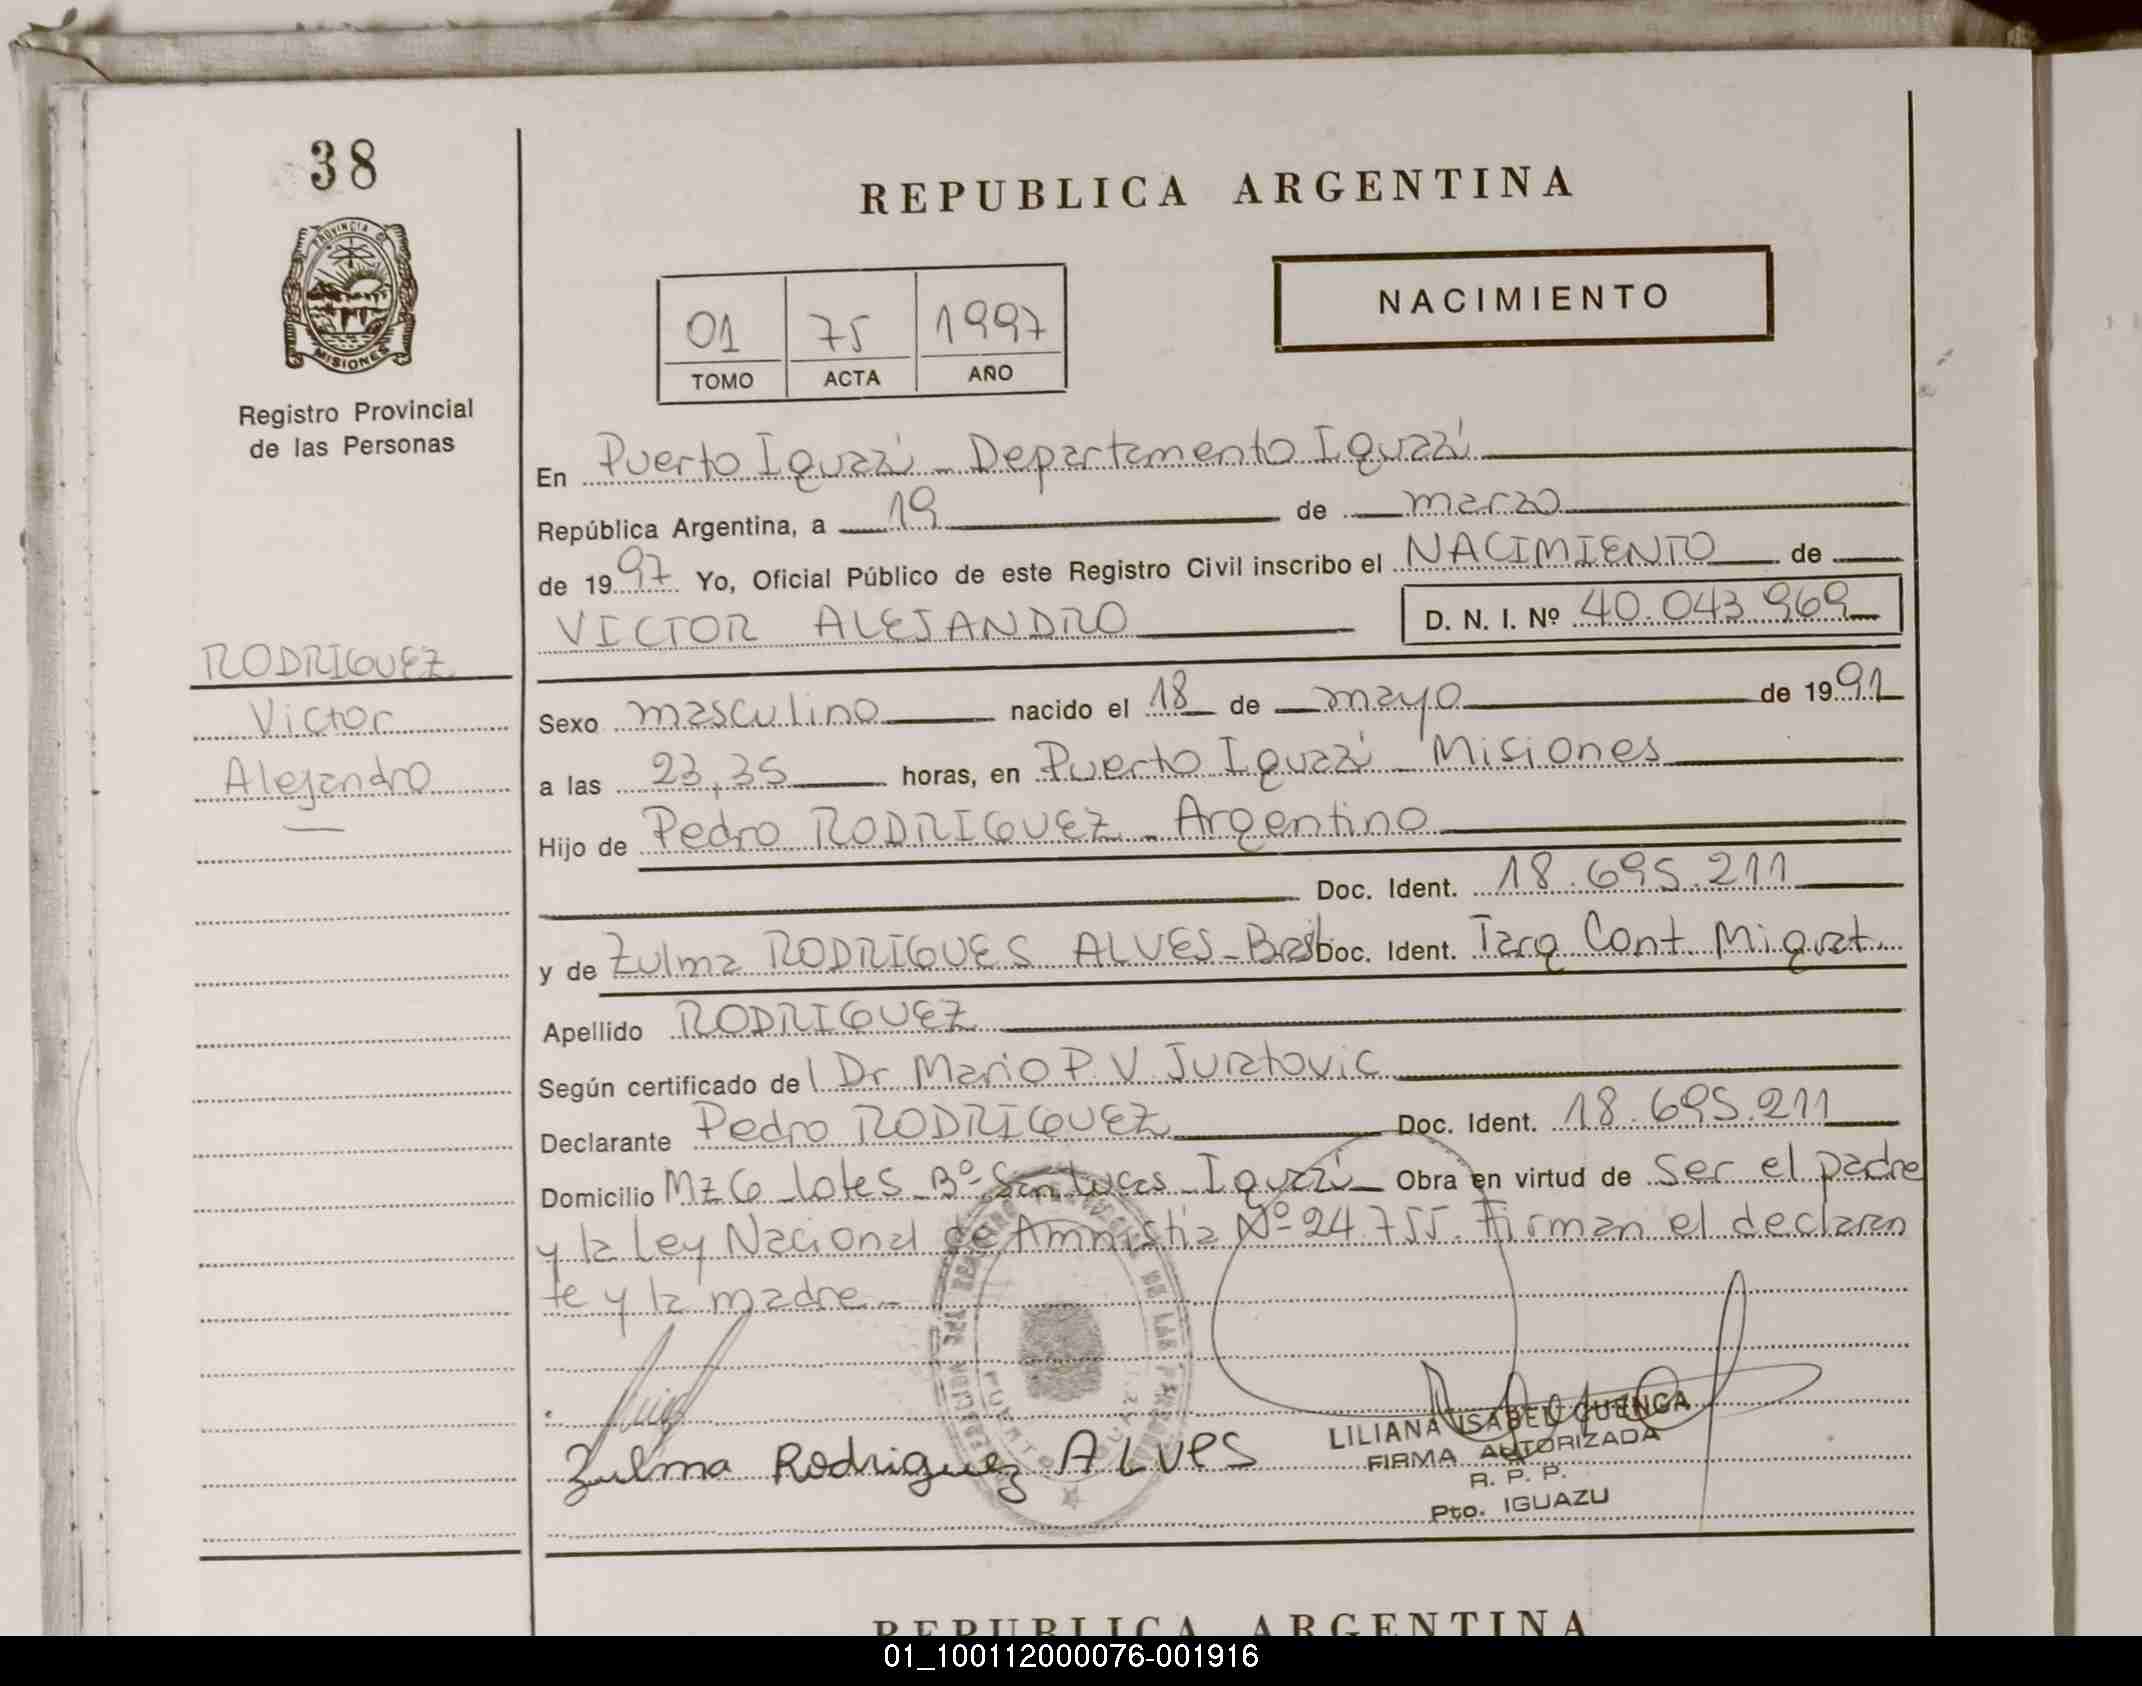 38
PROVINCIA DE
MISIONES
Registro Provincial
de las Personas
REPUBLICA ARGENTINA
NACIMIENTO
01 75 1997
TOMO ACTA AÑO
En Puerto Iguazú - Departamento Iguazú
República Argentina, a 19 de marzo
de 1997 Yo, Oficial Público de este Registro Civil inscribo el NACIMIENTO de
VICTOR ALEJANDRO D. N. I. Nº 40.043.969
RODRIGUEZ
Victor
Alejandro
Sexo masculino nacido el 18 de mayo de 1991
a las 23,35 horas, en Puerto Iguazú - Misiones
Hijo de Pedro RODRIGUEZ - Argentino
Doc. Ident. 18.695.211
y de Zulma RODRIGUES ALVES - Bras Doc. Ident. Tarq Cont. Migrat.
Apellido RODRIGUEZ
Según certificado del Dr Mario P. V. Juratovic
Declarante Pedro RODRIGUEZ Doc. Ident. 18.695.211
Domicilio Mz 6 - lote 5 - Bº San Lucas - Iguazú Obra en virtud de ser el padre
y la Ley Nacional de Amnistia Nº 24.755. Firman el declaran
te y la madre.-
Zulma Rodriguez ALVES
LILIANA ISABEL CUENCA
FIRMA AUTORIZADA
R. P. P.
Pto. IGUAZU
REPUBLICA ARGENTINA
01_100112000076-001916